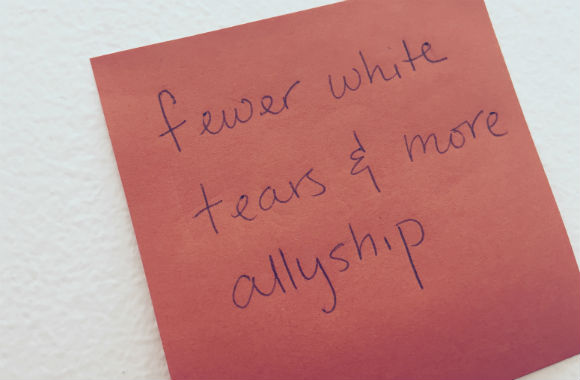 fewer white
tears & more
allyship